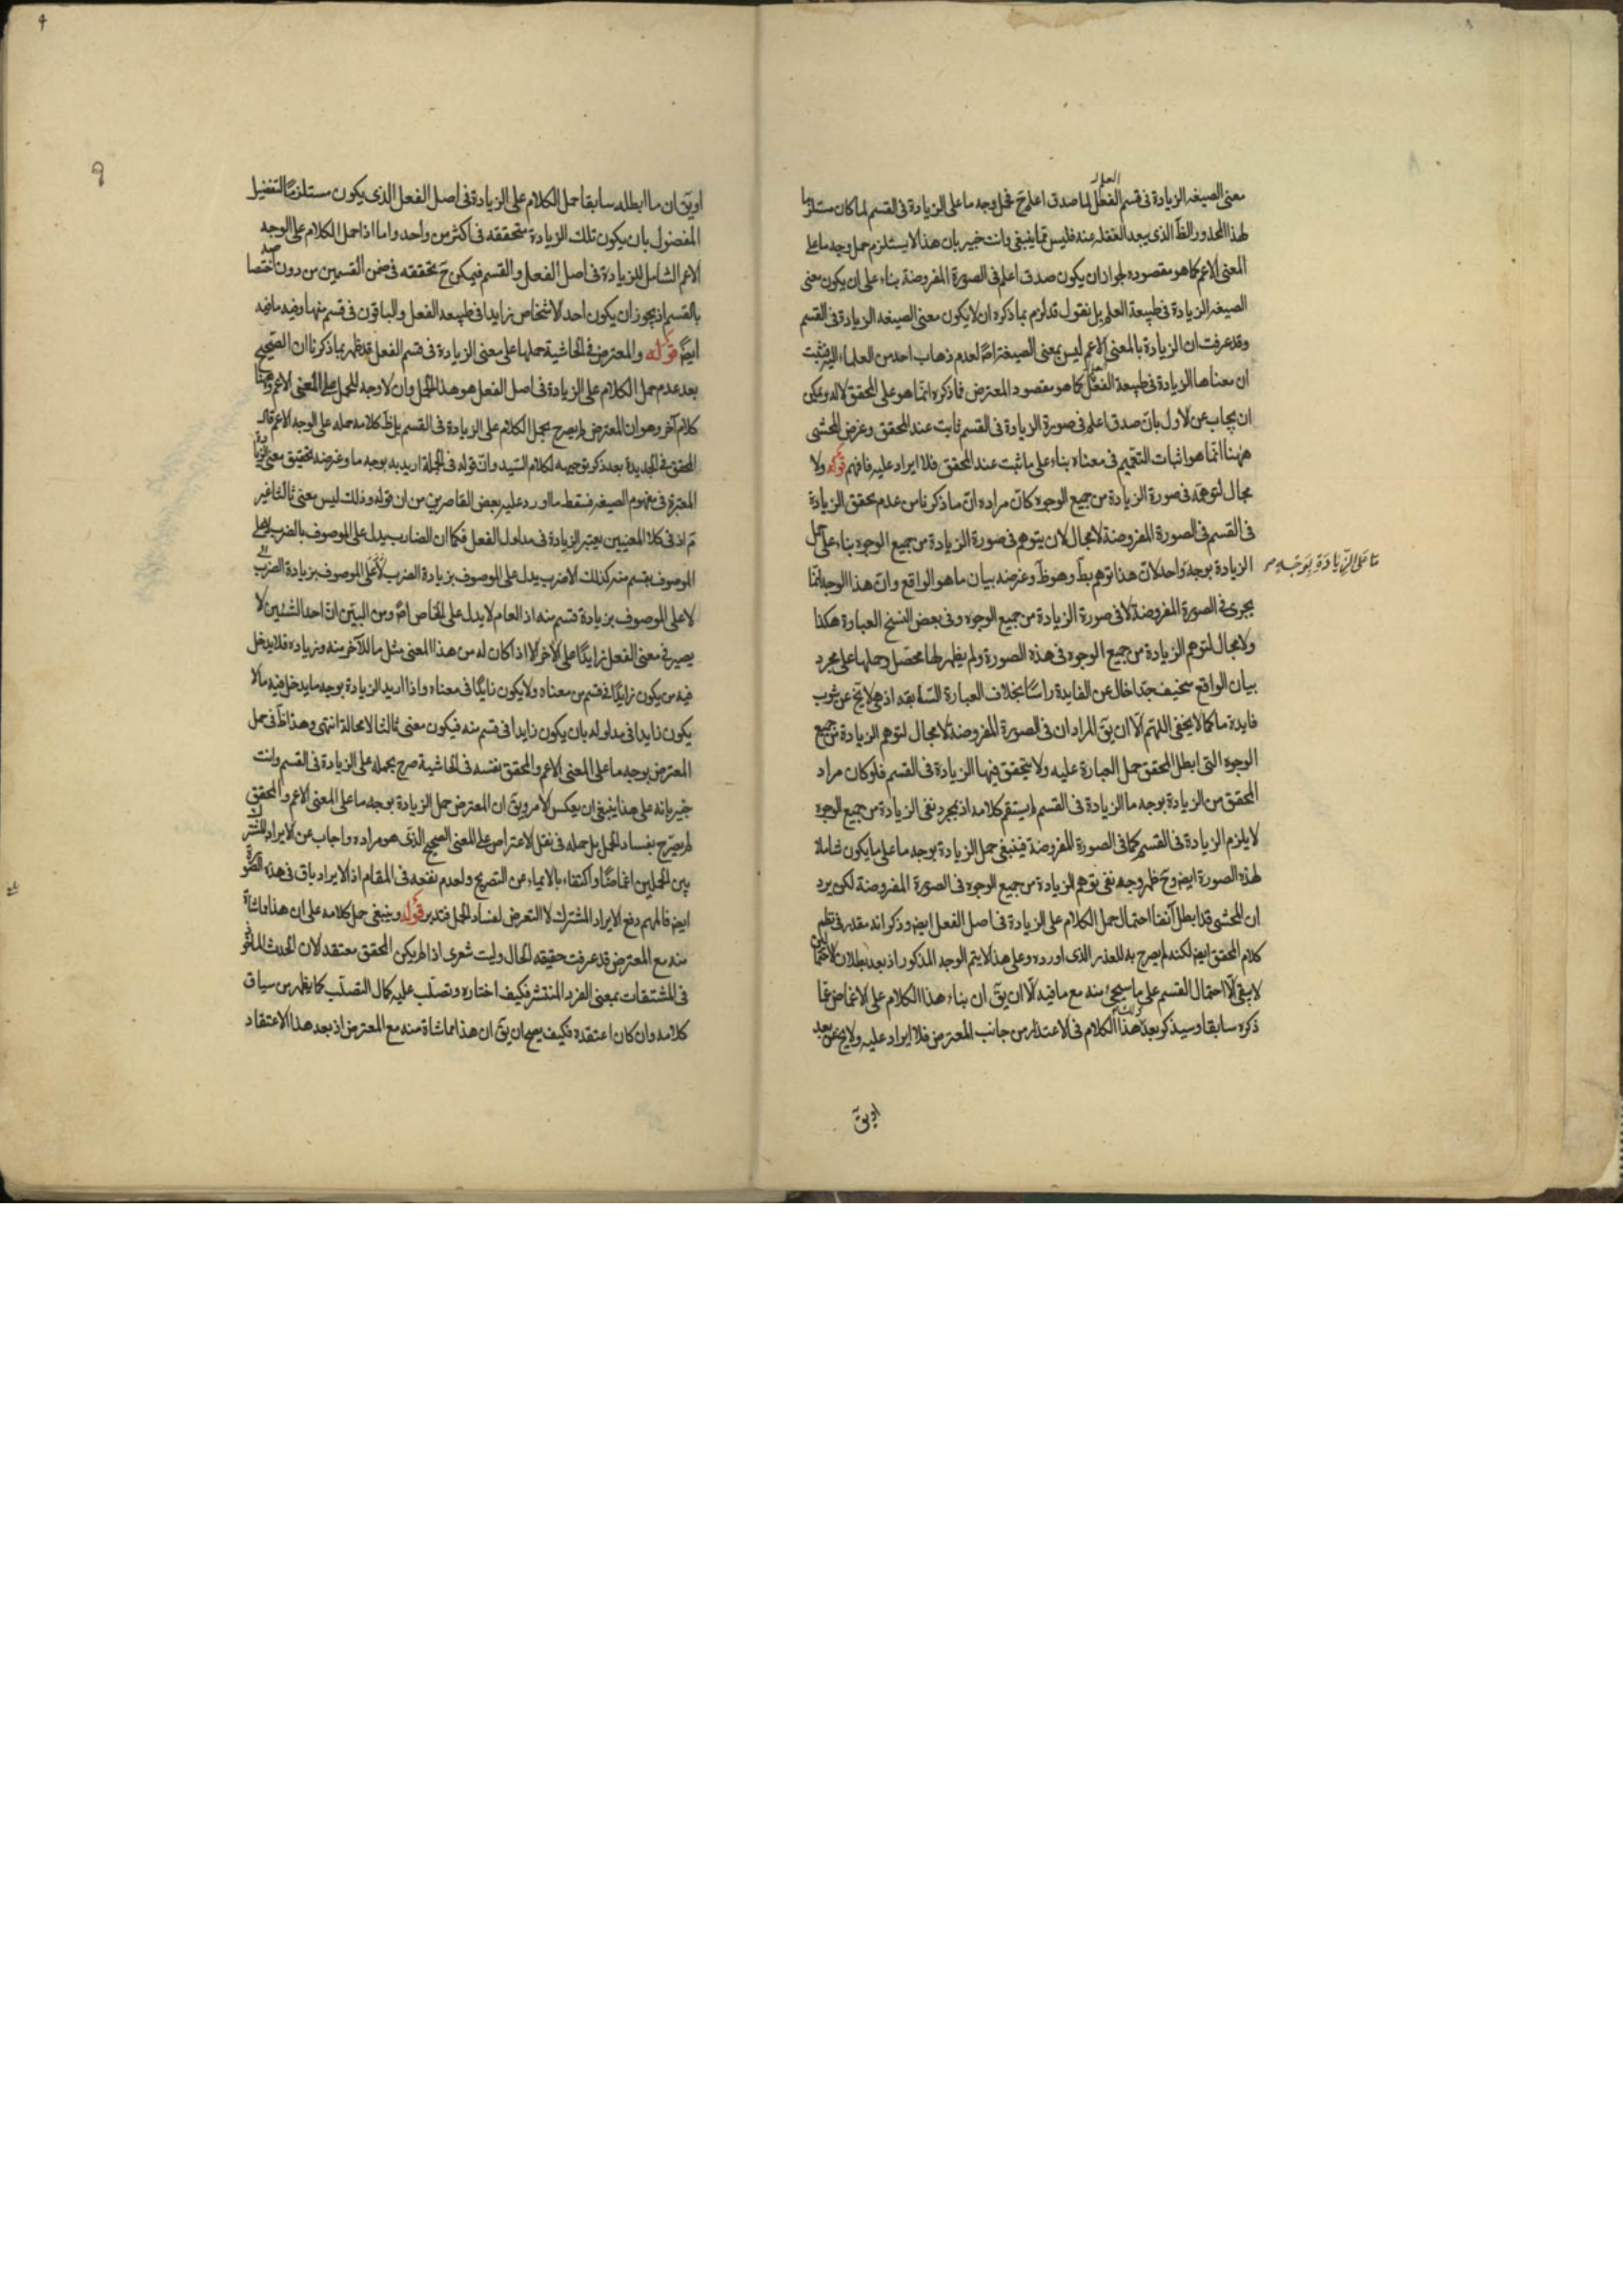 معنى الصيغه الزيادة فى قسم الفعل لما صدق اعلم ح فحمل وجه ما على الزيادة فى القسم لما كان مستلزما
العلم
لهذا المحذور الظ الذى يبعد الغفلة عنه فليس مما ينبغى وانت خبير بان هذا لا يستلزم حمل وجه ما على
المعنى الاعم كما هو مقصوده لجواز ان يكون صدق اعلم فى الصورة المفروضة بناء على ان يكون معنى
الصيغه الزيادة فى طبيعة العلم بل نقول قد لزم مما ذكره ان لا يكون معنى الصيغه الزيادة فى القسم
وقد عرفت ان الزيادة بالمعنى الاعم ليس بمعنى الصيغة اصلا لعدم ذهاب احد من العلماء اليه فثبت
ان معناها الزيادة فى طبيعة الفعل كما هو مقصود المعترض فما ذكره انما هو على المحقق لا له ويمكن
ان يجاب عن الاول بان صدق اعلم فى صورة الزيادة فى القسم ثابت عند المحقق وغرض المحشى
ههنا انما هو اثبات التعميم فى معناه بناء على ما ثبت عند المحقق فلا ايراد عليه فافهم قوله ولا
مجال لتوهمه فى صورة الزيادة من جميع الوجوه كان مراده ان ما ذكرنا من عدم تحقق الزيادة
فى القسم فى الصورة المفروضة لا مجال لان يتوهم فى صورة الزيادة من جميع الوجوه بناء على حمل
الزيادة بوجه واحد لان هذا توهم بط وهو ظ وغرضه بيان ما هو الواقع وان هذا الوجه انما
ما على الزيادة بوجه
يجرى فى الصورة المفروضة لا فى صورة الزيادة من جميع الوجوه وفى بعض النسخ العبارة هكذا
ولا مجال لتوهم الزيادة من جميع الوجوه فى هذه الصورة ولم يظهر لها محصل وحملها على مجرد
بيان الواقع سخيف جدا خال عن الفايدة راسا بخلاف العبارة السابقه اذ هى لا يخ عن شوب
فايدة ما كما لا يخفى اللهم الا ان يق المراد ان فى الصورة المفروضة لا مجال لتوهم الزيادة من جميع
الوجوه التى ابطل المحقق حمل العبارة عليه ولا يتحقق فيها الزيادة فى القسم فلو كان مراد
المحقق من الزيادة بوجه ما الزيادة فى القسم لم يستقم كلامه اذ بمجرد نفى الزيادة من جميع الوجوه
لا يلزم الزيادة فى القسم كما فى الصورة المفروضة فينبغى حمل الزيادة بوجه ما على ما يكون شاملا
لهذه الصورة ايض وح ظهر وجه نفى توهم الزيادة من جميع الوجوه فى الصورة المفروضة لكن يرد
ان المحشى قد ابطل آنفا احتمال حمل الكلام على الزيادة فى اصل الفعل ايض وذكر انه مقدر فى نظم
كلام المحقق ايض لكنه لم يصرح به للعذر الذى اورده وعلى هذا لا يتم الوجه المذكور اذ بعد بطلان الاحتمالين
لا يبقى الا احتمال القسم على ما سيجئ منه مع ما فيه الا ان يق ان بناء هذا الكلام على الاغماض عما
ذكره سابقا وسيذكر بعد هذا الكلام فى الاعتذار من جانب المعترض فلا ايراد عليه ولا يخ عن بعد
او يق
٩
او يق ان ما ابطله سابقا حمل الكلام على الزيادة فى اصل الفعل الذى يكون مستلزما لتفضيل
المفضول بان يكون تلك الزيادة متحققه فى اكثر من واحد واما اذا حمل الكلام على الوجه
الاعم الشامل للزيادة فى اصل الفعل والقسم فيمكن ح تحققه فى ضمن القسمين من دون اختصاصه
بالقسم اذ يجوز ان يكون احد الاشخاص زايدا فى طبيعه الفعل والباقون فى قسم منها وفيه ما فيه
ايض قوله والمعترض فى الحاشية حملها على معنى الزيادة فى قسم الفعل قد ظهر بما ذكرنا ان الصحيح
بعد عدم حمل الكلام على الزيادة فى اصل الفعل هو هذا الحمل وان لا وجه للحمل على المعنى الاعم وههنا
كلام آخر وهو ان المعترض لم يصرح بحمل الكلام على الزيادة فى القسم بل ظ كلامه حمله على الوجه الاعم قال
المحقق فى الجديدة بعد ذكر توجيهه لكلام السيد وان قوله فى الجملة اريد به بوجه ما وغرضه تحقيق معنى الزيادة
المعتبرة فى مفهوم الصيغه فسقط ما اورد عليه بعض القاصرين من ان قوله وذلك ليس معنى ثالثا غير
تم اذ فى كلا المعنيين يعتبر الزيادة فى مدلول الفعل فكما ان الضارب يدل على الموصوف بالضرب لا على
الموصوف بقسم منه كذلك الاضرب يدل على الموصوف بزيادة الضرب
لا على الموصوف بزيادة قسم منه اذ العام لا يدل على الخاص اصلا ومن البين ان احد الشيئين لا
يصير فى معنى الفعل زايدا على الآخر الا اذا كان له من هذا المعنى مثل ما للآخر منه وزياده فلا يدخل
فيه من يكون زايدا فى قسم من معناه ولا يكون زايدا فى معناه واذا اريد الزيادة بوجه ما يدخل فيه ما لا
يكون زايدا فى مدلوله بان يكون زايدا فى قسم منه فيكون معنى ثالثا لا محالة انتهى وهذا ظ فى حمل
المعترض بوجه ما على المعنى الاعم والمحقق نفسه فى الحاشية صرح بحمله على الزيادة فى القسم وانت
خبير بانه على هذا ينبغى ان يعكس الامر ويق ان المعترض حمل الزيادة بوجه ما على المعنى الاعم والمحقق
لم يصرح بفساد الحمل بل حمله فى نقل الاعتراض على المعنى الصحيح الذى هو مراده واجاب عن الايراد المشترك
بين الحملين اغماضا واكتفاء بالايماء عن التصريح ولعدم نفعه فى المقام اذ الايراد باق فى هذه الصورة
ايض فالمهم دفع الايراد المشترك لا التعرض لفساد الحمل فتدبر قوله وينبغى حمل كلامه على ان هذا مماشاة
منه مع المعترض قد عرفت حقيقه الحال وليت شعرى اذا لم يكن المحقق معتقد لان الحدث الماخوذ
فى المشتقات بمعنى الفرد المنتشر فكيف اختاره وتصلب عليه كمال التصلب كما يظهر من سياق
كلامه وان كان اعتقده فكيف يصح ان يق ان هذا مماشاة منه مع المعترض اذ بعد هذا الاعتقاد